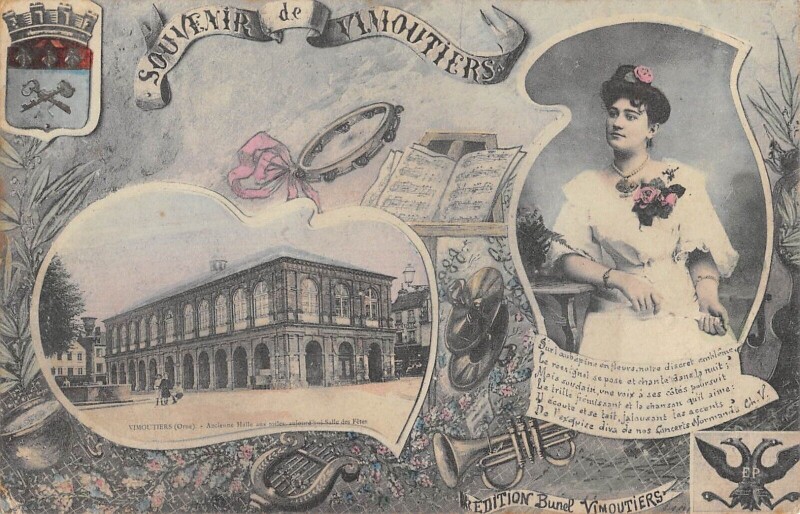 SOUVENIR de VIMOUTIERS
VIMOUTIERS (Orne). - Ancienne Halle aux toiles, aujourd'hui Salle des Fêtes
Sur l'aubépine en fleurs, notre discret emblème,
Le rossignol se pose et chante dans la nuit;
Mais soudain, une voix à ses côtés poursuit
Le trille éblouissant et la chanson qu'il aime:
Il écoute et se tait, saluant les accents
De l'exquise diva de nos Concerts Normands
Ch. V.
EDITION Bunel VIMOUTIERS
E P